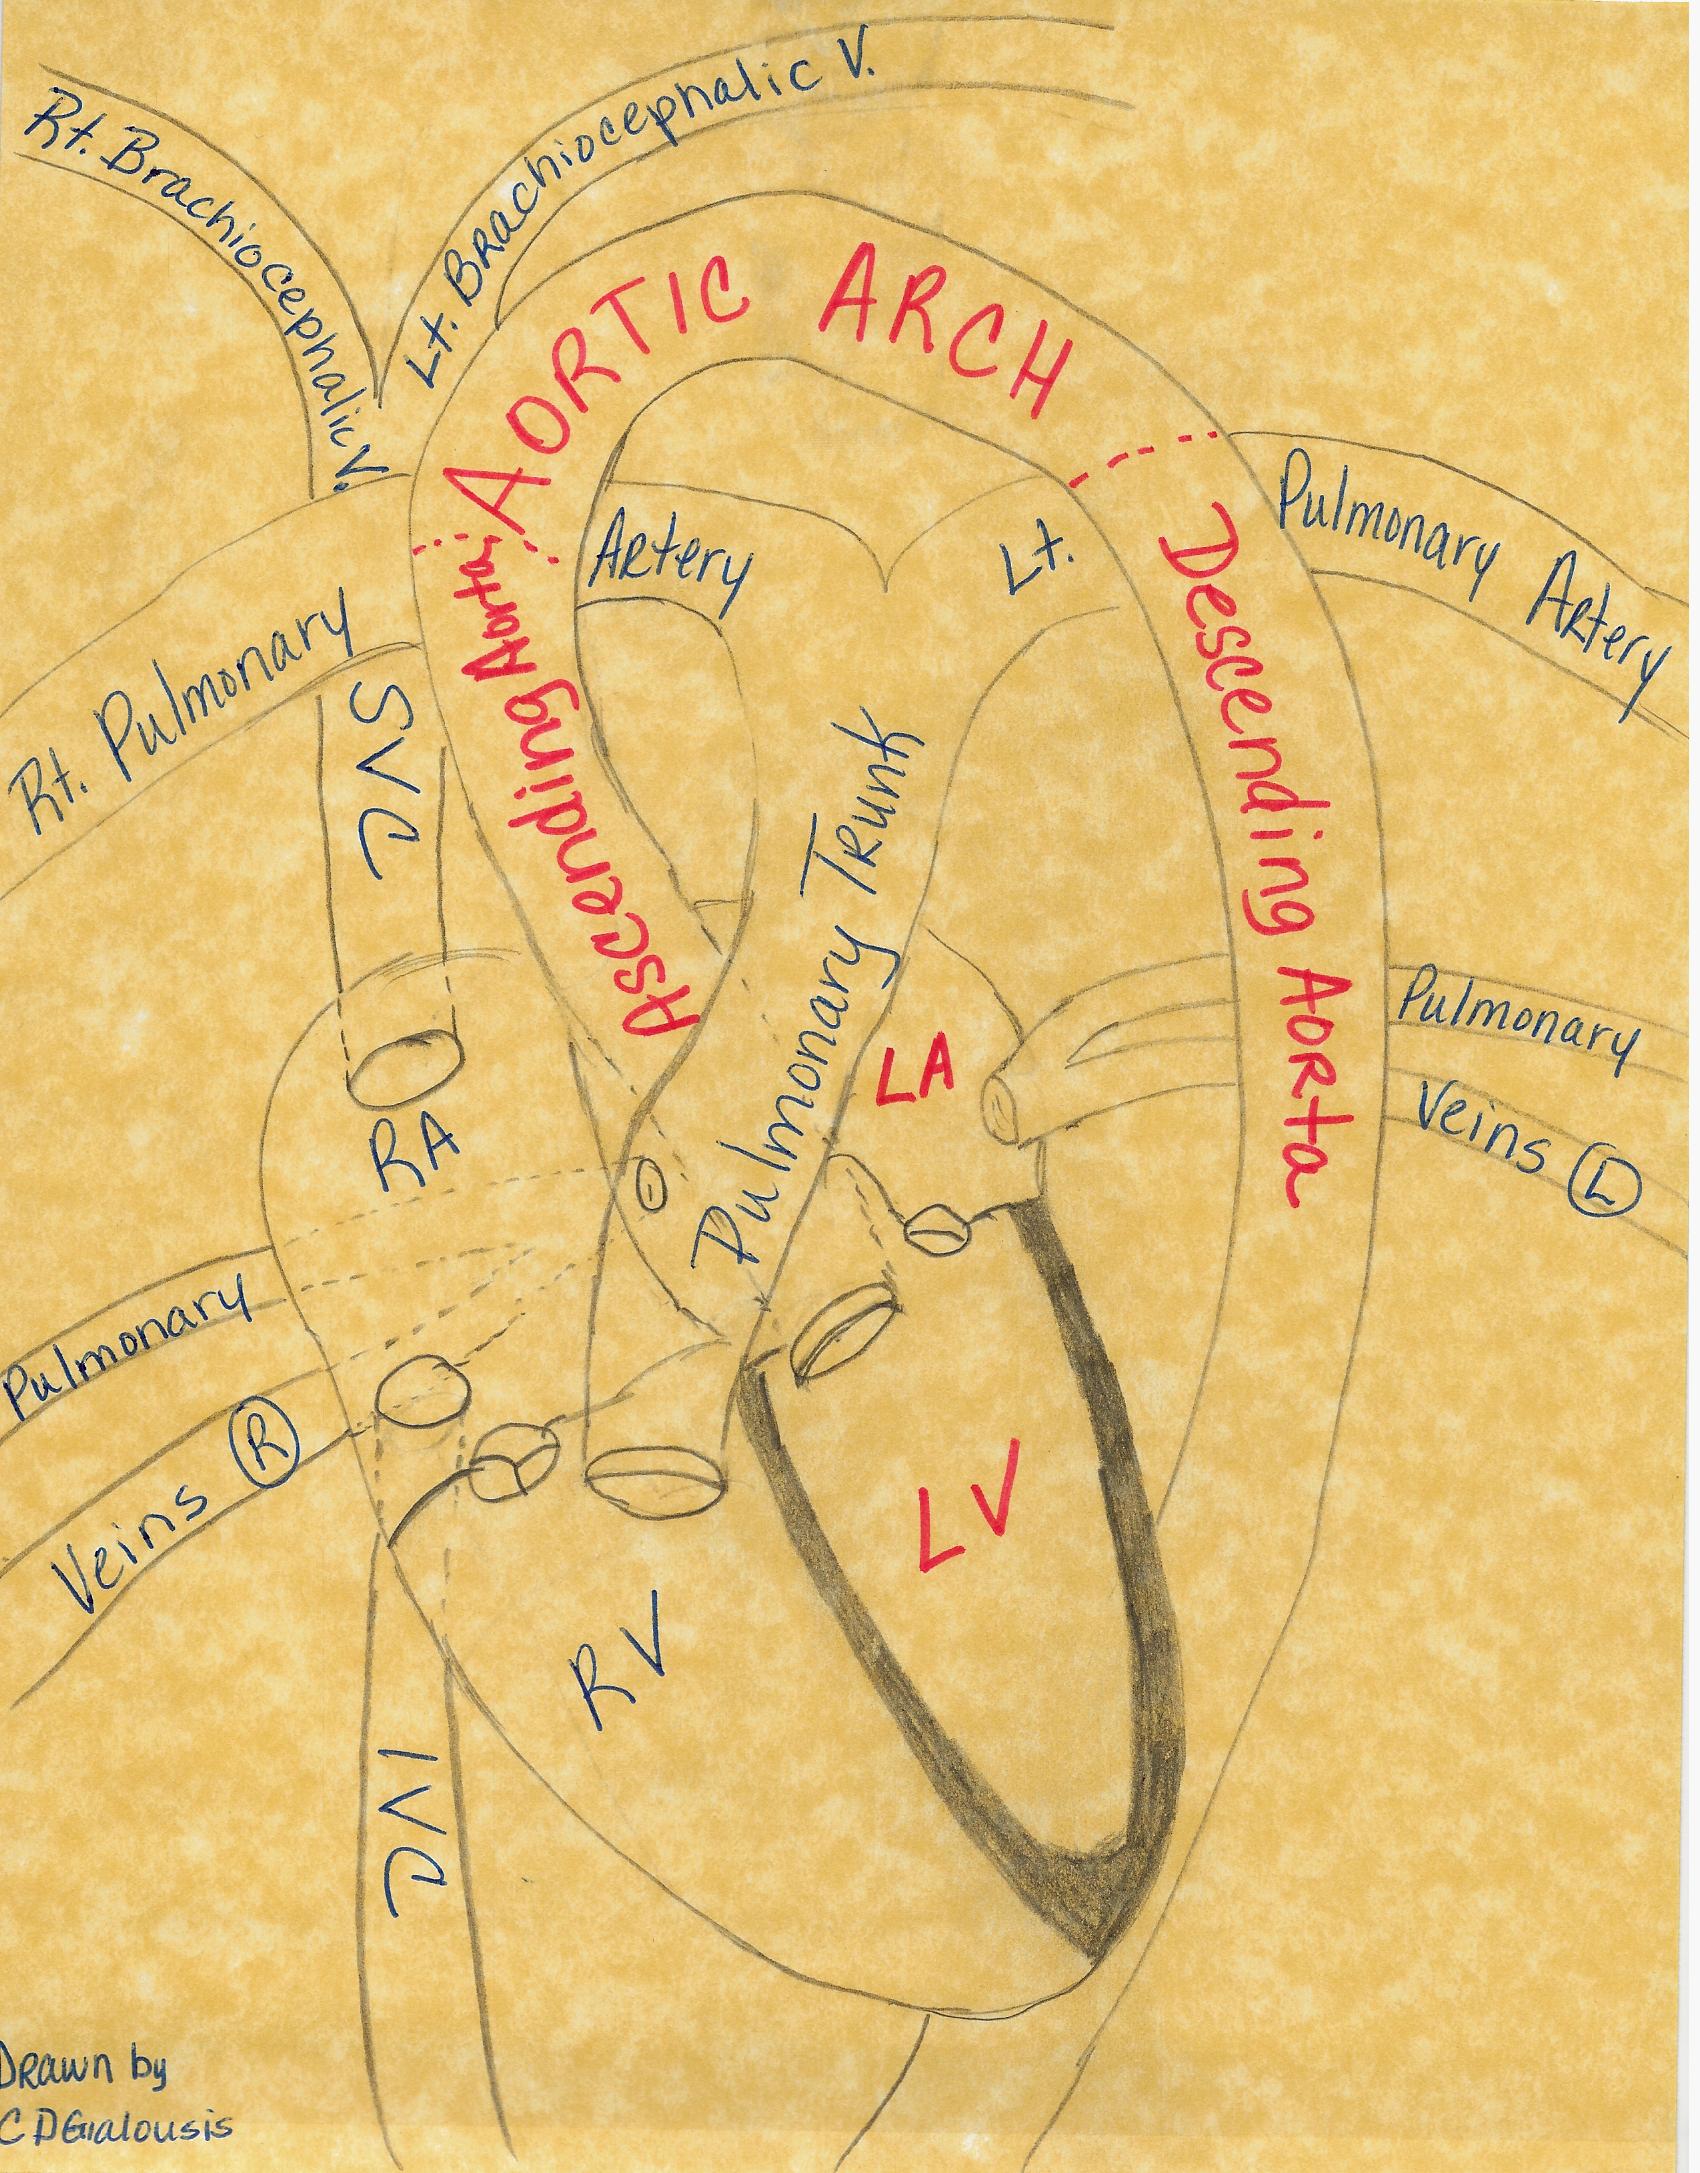 Rt. Brachiocephalic V.
Lt. Brachiocephalic V.
AORTIC ARCH
Ascending Aorta
Descending Aorta
Rt. Pulmonary
Artery
Lt.
Pulmonary Artery
SVC
Pulmonary Trunk
LA
RA
Pulmonary
Veins L
Pulmonary
Veins R
LV
RV
IVC
Drawn by
CDGialousis